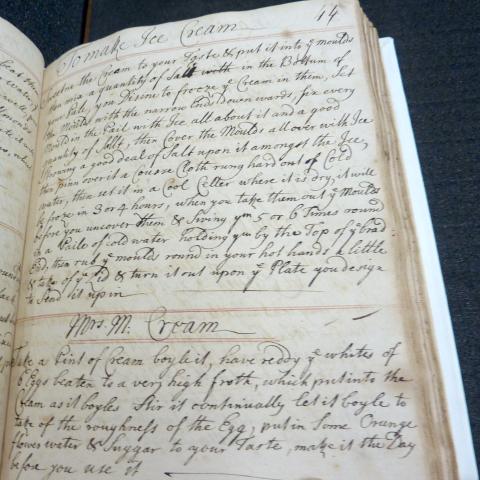 14
To make Ice Cream
Sweeten the Cream to your Taste & put it into yͤ moulds
then mix a quantity of Salt with in the Bottom of
your Pail, you Disine to freeze yͤ Cream in them, Set
the Moulds with the narrow Ends Down wards, fix every
Mould in the Pail with Ice all about it and a good
quantity of Salt, then Cover the Moulds all over with Ice
Throwing a good deal of Salt upon it amongst the Ice,
then pinn over it a Course Cloth rung hard out of Cold
water, then set it in a Cool Celler where it is dry, it will
be froze in 3 or 4 hours, when you take them out yͤ Moulds
before you uncover them & Swing yᵐ 5 or 6 Times round
in a Paile of Cold water holding yᵐ by the Top of yͤ brad
End, then rub yͤ moulds round in your hot hands a little
& take of yͤ Lid & turn it out upon yͤ Plate you design
to Send it up in
Mrs. M. Cream
Take a Pint of Cream boyle it, have reddy yͤ whites of
6 Eggs beaten to a very high froth, which put into the
Cream as it boyles Stir it continually let it boyle to
take of the roughness of the Egg, put in Some Orange
flower water & Suggar to your Taste, make it the Day
before you use it